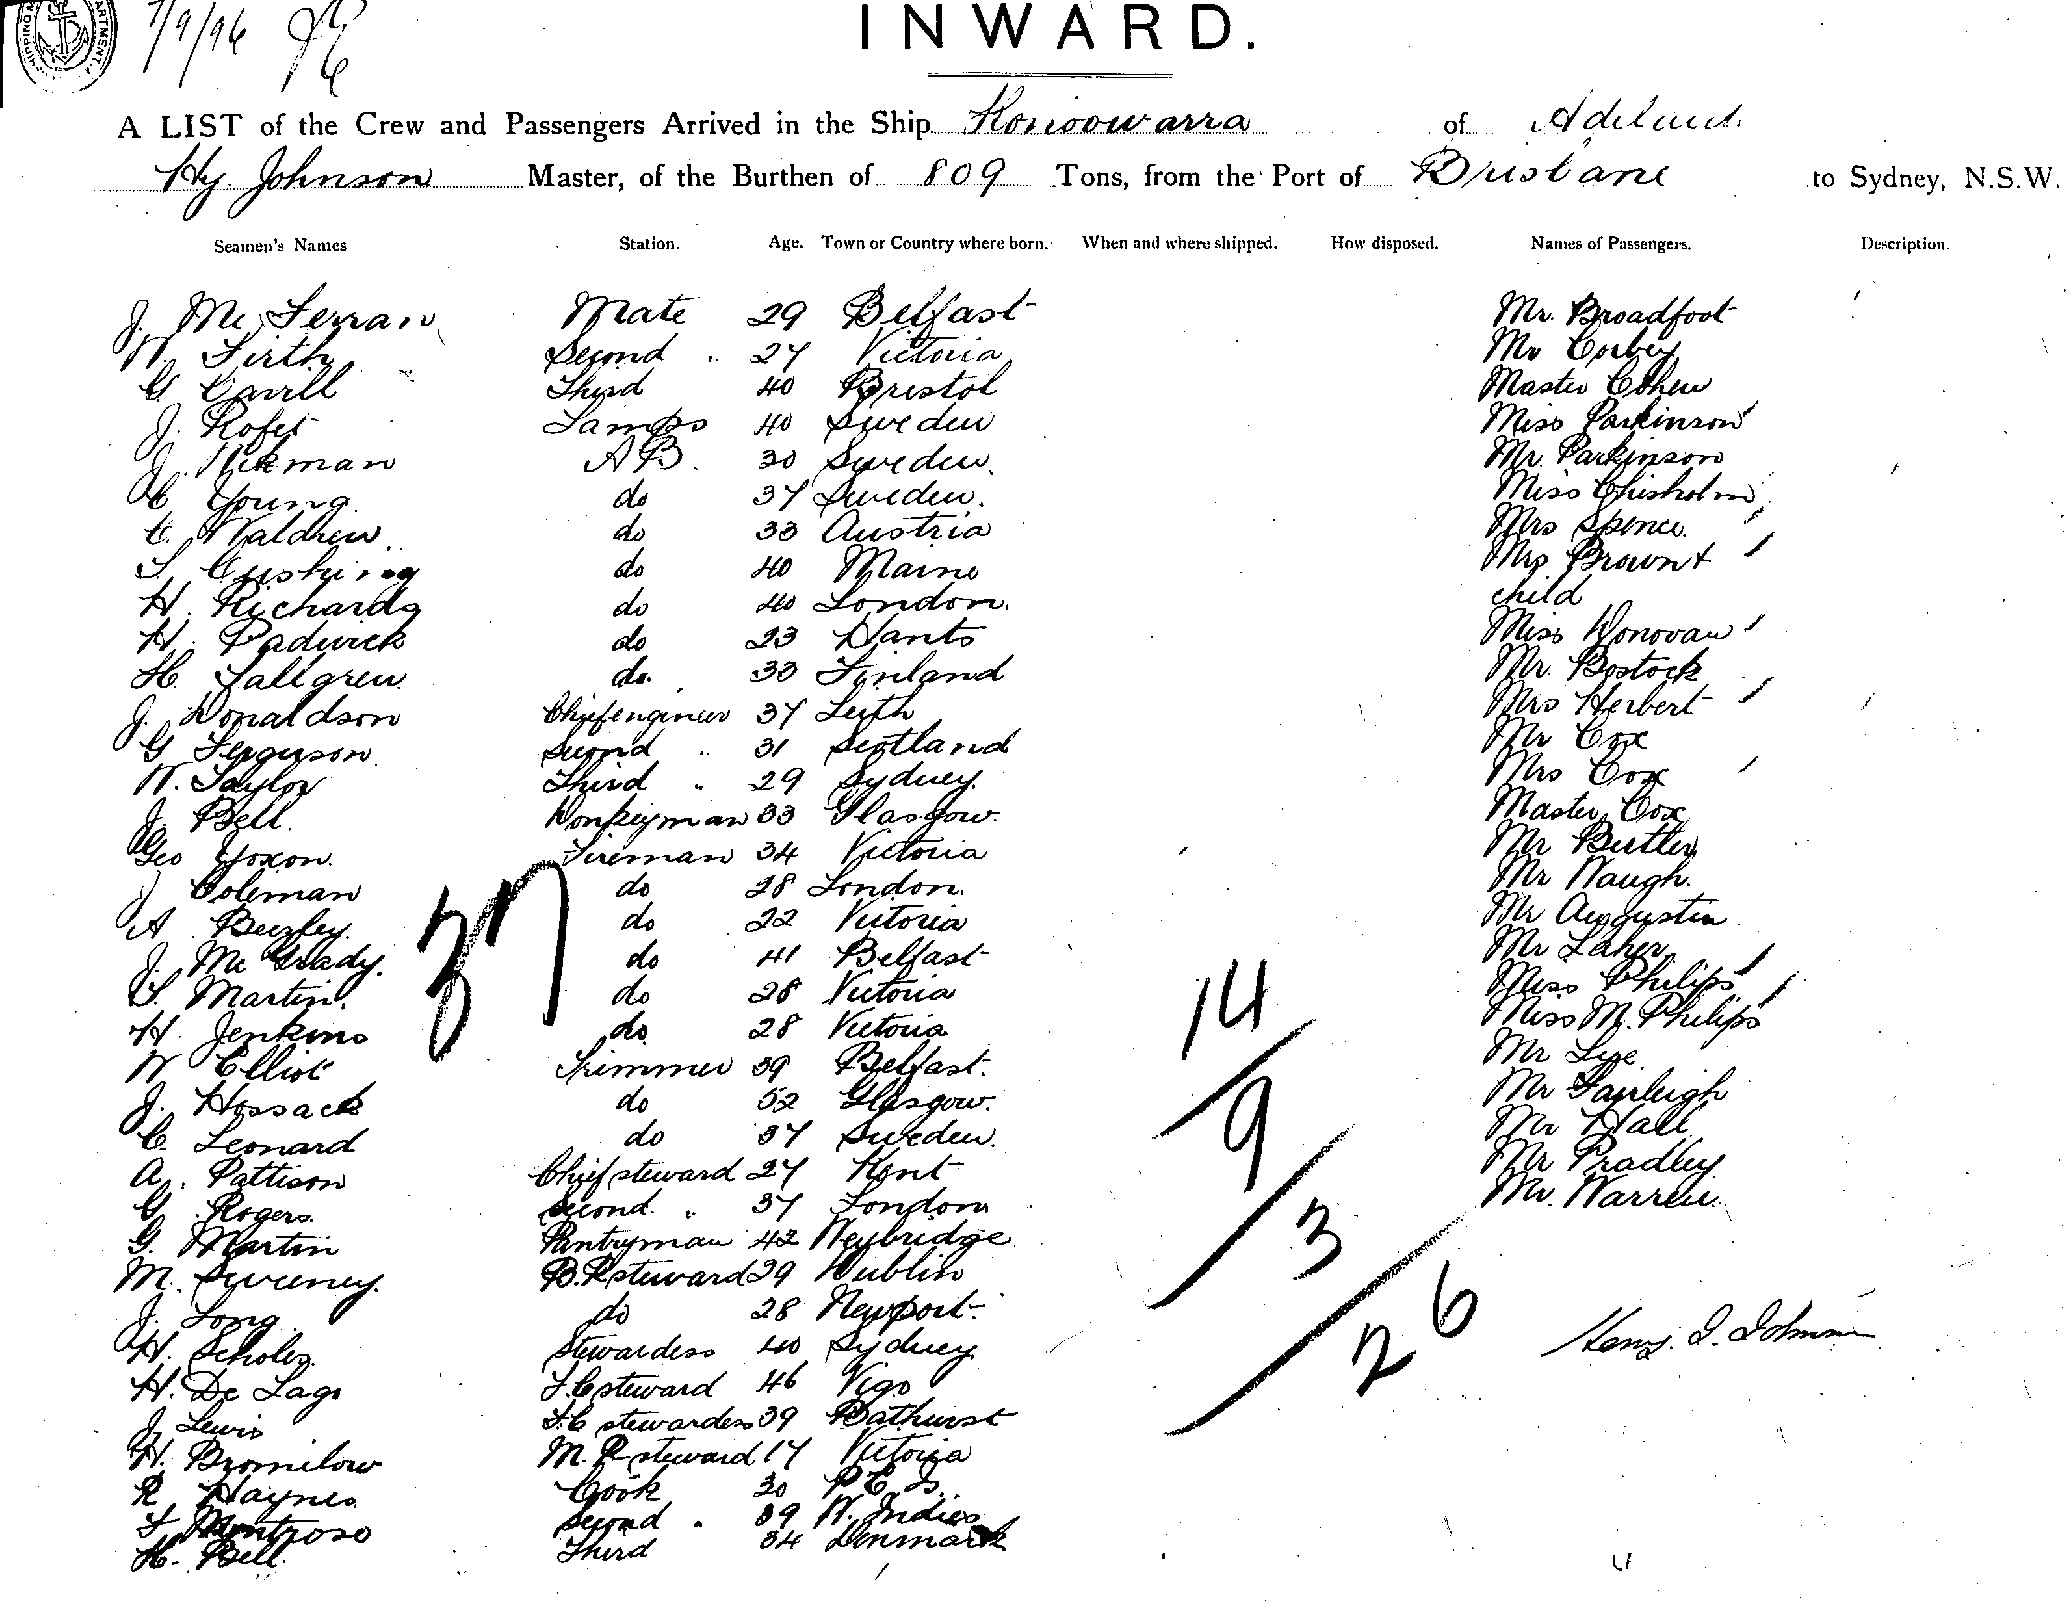 7/9/96
INWARD.
A LIST of the Crew and Passengers Arrived in the Ship Konoowarra of
Hy. Johnson Master, of the Burthen of 809 Tons, from the Port of Brisbane to Sydney, N.S.W.
Seamen's Names Station. Age. Town or Country where born. When and where shipped. How disposed. Names of Passengers. Description.
J. Mc Ferran Mate 29 Belfast Mr. Broadfoot
W. Firth Second " 27 Victoria Mr Corbey
G Cavill Third 40 Bristol Master Cohen
J. Lamps 40 Sweden Miss Parkinson
J. Wikman AB. 30 Sweden. Mr. Parkinson
C Young do 37 Sweden. Miss Chisholm
C. Waldren do 33 Austria Mrs Spence.
S Cushing do 40 Maine Mrs Brown +
H. Richards do 40 London. child
H. Padwick do 23 Hants Miss Donovan
H. Tallgren do. 33 Finland Mr. Bostock
J. Donaldson Chief engineer 37 Leith Mrs Herbert
G Ferguson Second " 31 Scotland Mr Cox
W. Taylor Third " 29 Sydney. Mrs Cox
J. Bell. Donkeyman 33 Glasgow. Master Cox
Geo Yoxon. Fireman 34 Victoria Mr Butler
J Coleman do 28 London. Mr Waugh.
A Beezley. do 22 Victoria Mr Augustin
J. Mc Grady. do 41 Belfast Mr Laher
S. Martin. do 28 Victoria Miss Philips
H. Jenkins do 28 Victoria Miss M. Philips
W Elliot Trimmer 39 Belfast. Mr Lye
J. Hossack do 52 Glasgow. Mr Fairleigh
C. Leonard do 37 Sweden. Mr Hall
A. Pattison Chief steward 27 Kent Mr Pradley
G Rogers. Second " 37 London Mr. Warren.
G. Martin Pantryman 42 Weybridge
M. Sweeney. B.R steward 29 Dublin
J. Long do 28 Newport
H. Scholes. Stewardess 40 Sydney
H. De Lago F.C steward 46 Vigo
J Lewis F.C stewardess 39 Bathurst
H. Bromilow M.R steward 17 Victoria
R Haynes. Cook 30 P.E. Is.
F Montrose Second " 39 W. Indies
H. Bell. Third 34 Denmark
37
14
9
3
26
Heny. I. Johnson